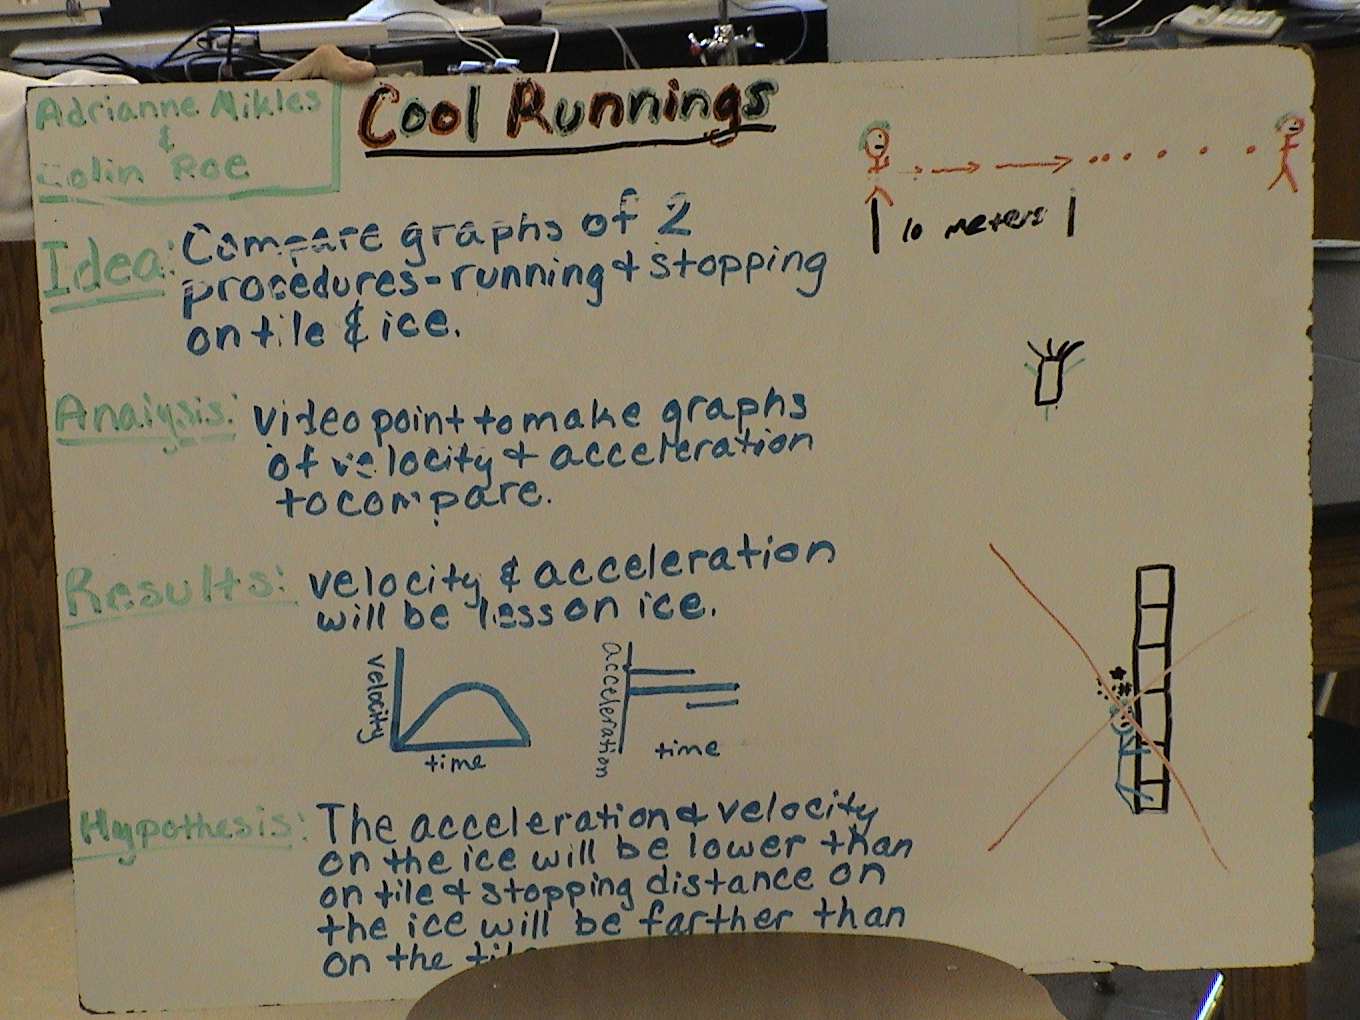 Adrianne Mikles
&
Colin Roe
Cool Runnings
10 meters
Idea: Compare graphs of 2
procedures - running + stopping
on tile & ice.
Analysis: Video point to make graphs
of velocity + acceleration
to compare.
Results: velocity & acceleration
will be less on ice.
velocity
time
acceleration
time
Hypothesis: The acceleration & velocity
on the ice will be lower than
on tile & stopping distance on
the ice will be farther than
on the